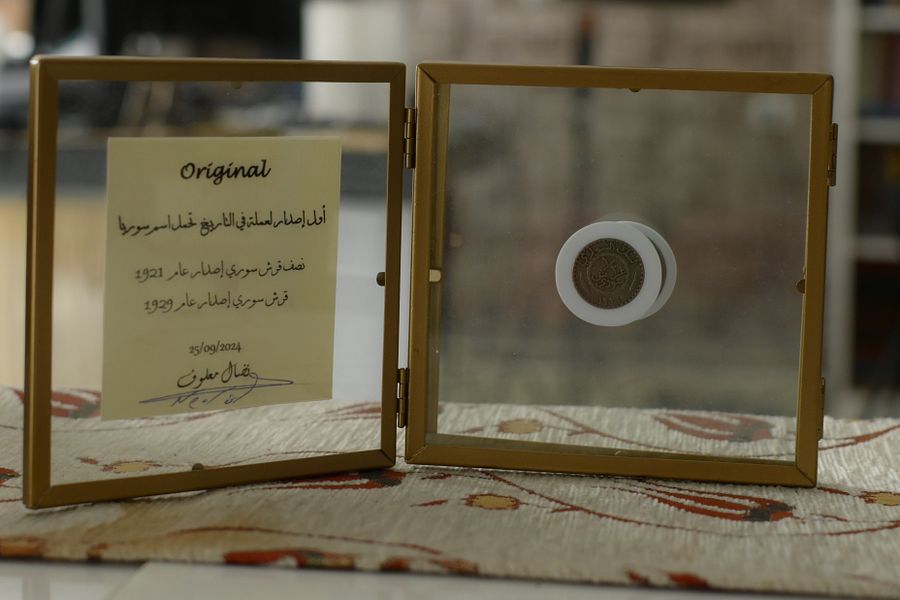 Original
أول إصدار لعملة في التاريخ تحمل اسم سوريا
نصف قرش سوري إصدار عام 1921
قرش سوري إصدار عام 1929
25/09/2024
نضال معلوف